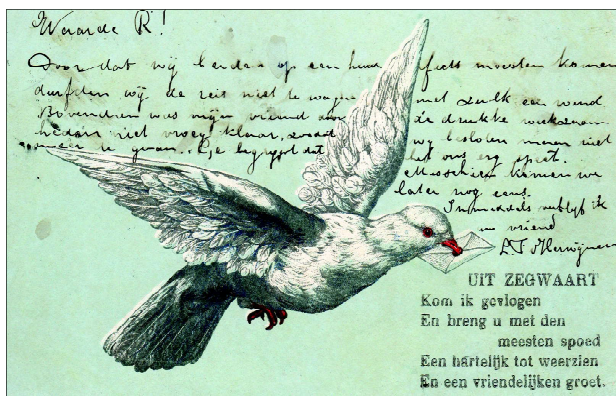 Waarde R!
Door dat wij beiden op een huur fiets moesten komen
durfden wij de reis niet te wagen met zulk een wind
Bovendien was mijn vriend door de drukke werkzaam
heden niet vroeg klaar, zoodat wij besloten maar niet
meer te gaan. U, begrijpt dat het ons erg spijt.
Misschien komen we
later nog eens.
Inmiddels verblijf ik
uw vriend
UIT ZEGWAART
Kom ik gevlogen
En breng u met den
meesten spoed
Een hartelijk tot weerzien
En een vriendelijken groet.